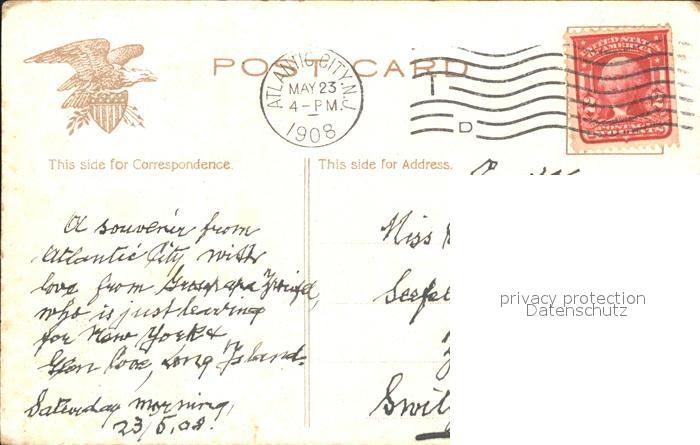 POST CARD
ATLANTIC CITY, N.J.
MAY 23
4-PM.
1908
T
D
UNITED STATES
OF AMERICA
2 2
POSTAGE
TWO CENTS
This side for Correspondence.
This side for Address.
A souvenir from
Atlantic City with
love from
who is just leaving
for New York &
Glen Cove, Long Island.
Saturday morning,
23/5.08.
Miss
Seefe
Swit
privacy protection
Datenschutz